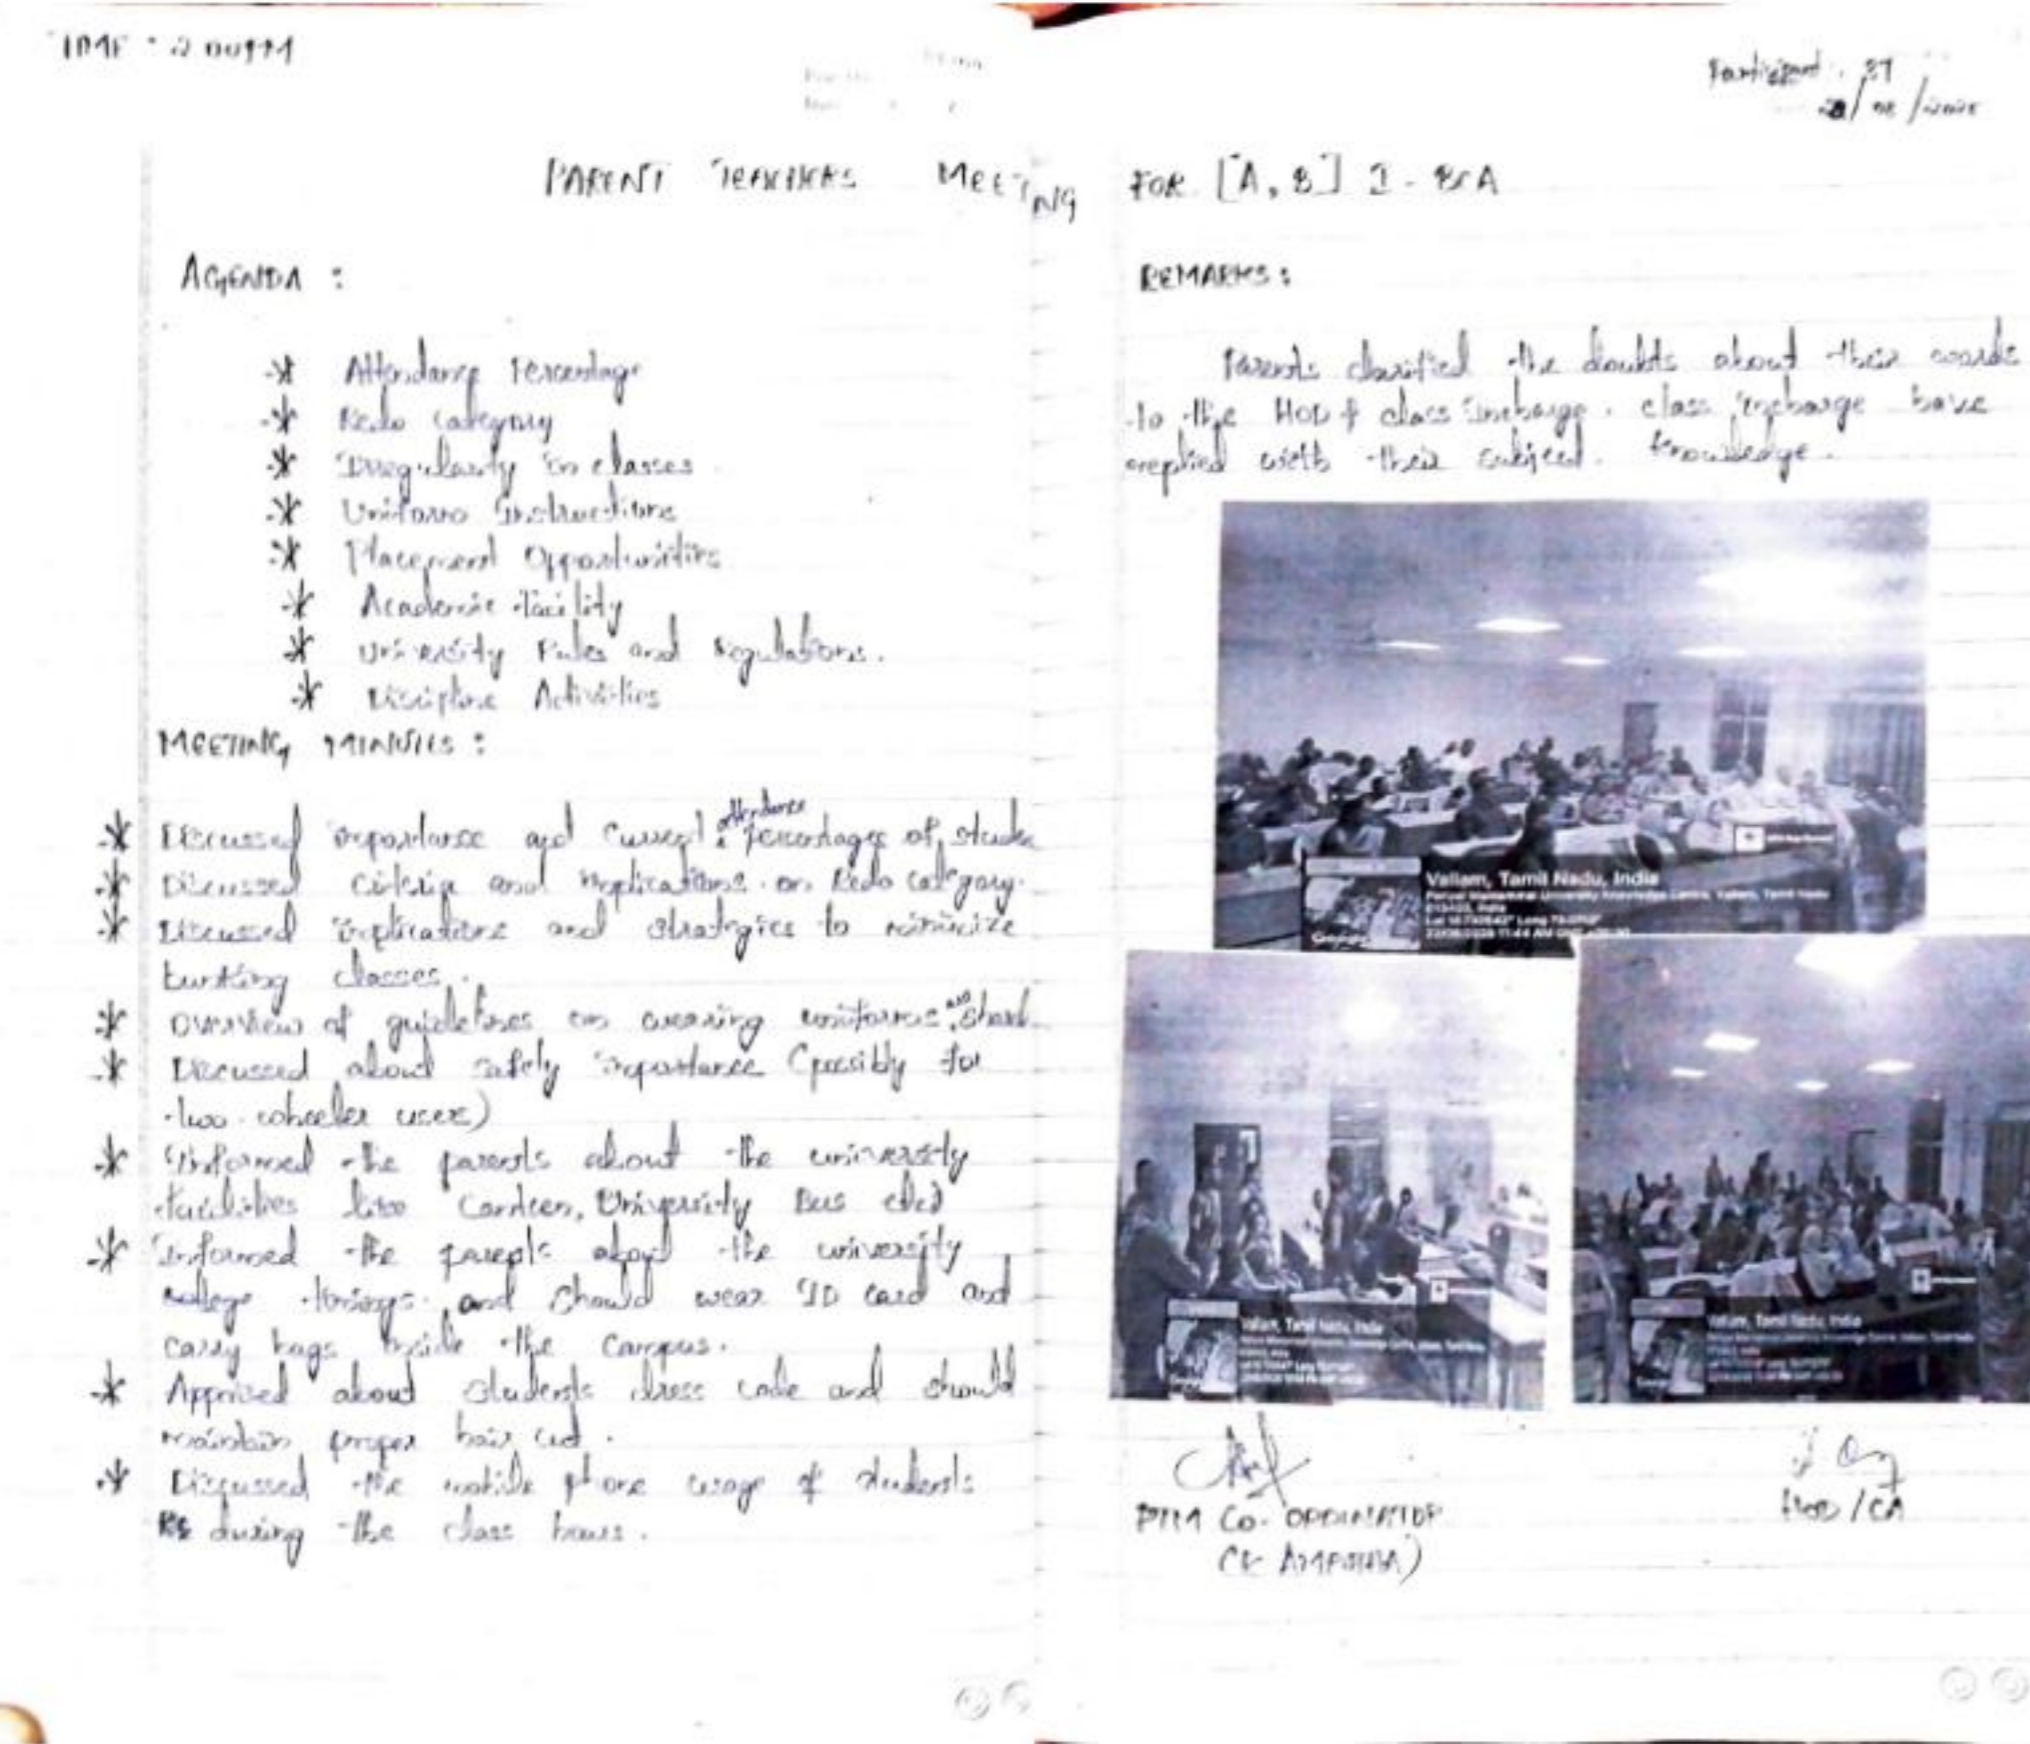 TIME : 2 00PM
Participant : 37
PARENT TEACHERS MEETING FOR [A, B] I - BCA
AGENDA :
* Attendance Percentage
* Redo Category
* Irregularity in classes
* Uniform Instructions
* Placement Opportunities
* Academic Facility
* University Rules and Regulations.
* Discipline Activities
MEETING MINUTES :
* Discussed importance and Current attendance Percentages of stude
* Discussed Criteria and implications on Redo category.
* Discussed implications and strategies to minimize
bunking classes.
* Overview of guidelines on wearing uniforms and
* Discussed about safety importance (possibly for
two-wheeler users)
* Informed the parents about the university
facilities like Canteen, University Bus
* Informed the parents about the university
college timings and should wear ID card and
carry bags inside the Campus.
* Apprised about students dress code and should
maintain proper hair cut.
* Discussed the mobile phone usage of students
during the class hours.
REMARKS :
Parents clarified the doubts about their wards
to the HOD & class incharge. class incharge have
replied with their subject knowledge.
Vallam, Tamil Nadu, India
Vallam, Tamil Nadu, India
Vallam, Tamil Nadu, India
PTM CO-ORDINATOR
HOD/CA